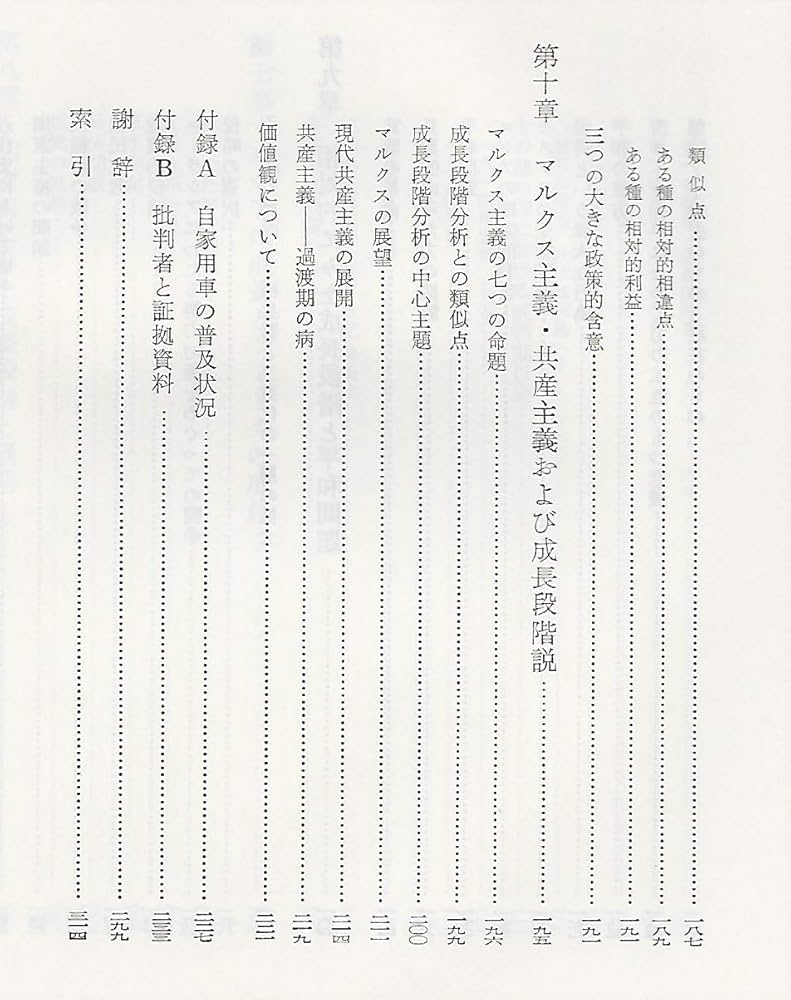 類似点……一八七
ある種の相対的相違点……一八九
ある種の相対的利益……一九一
三つの大きな政策的含意……一九一
第十章 マルクス主義・共産主義および成長段階説……一九五
マルクス主義の七つの命題……一九六
成長段階分析との類似点……一九九
成長段階分析の中心主題……二〇〇
マルクスの展望……二一一
現代共産主義の展開……二一四
共産主義――過渡期の病……二一九
価値観について……二二一
付録A 自家用車の普及状況……二二七
付録B 批判者と証拠資料……二三三
謝辞……二九九
索引……三一四